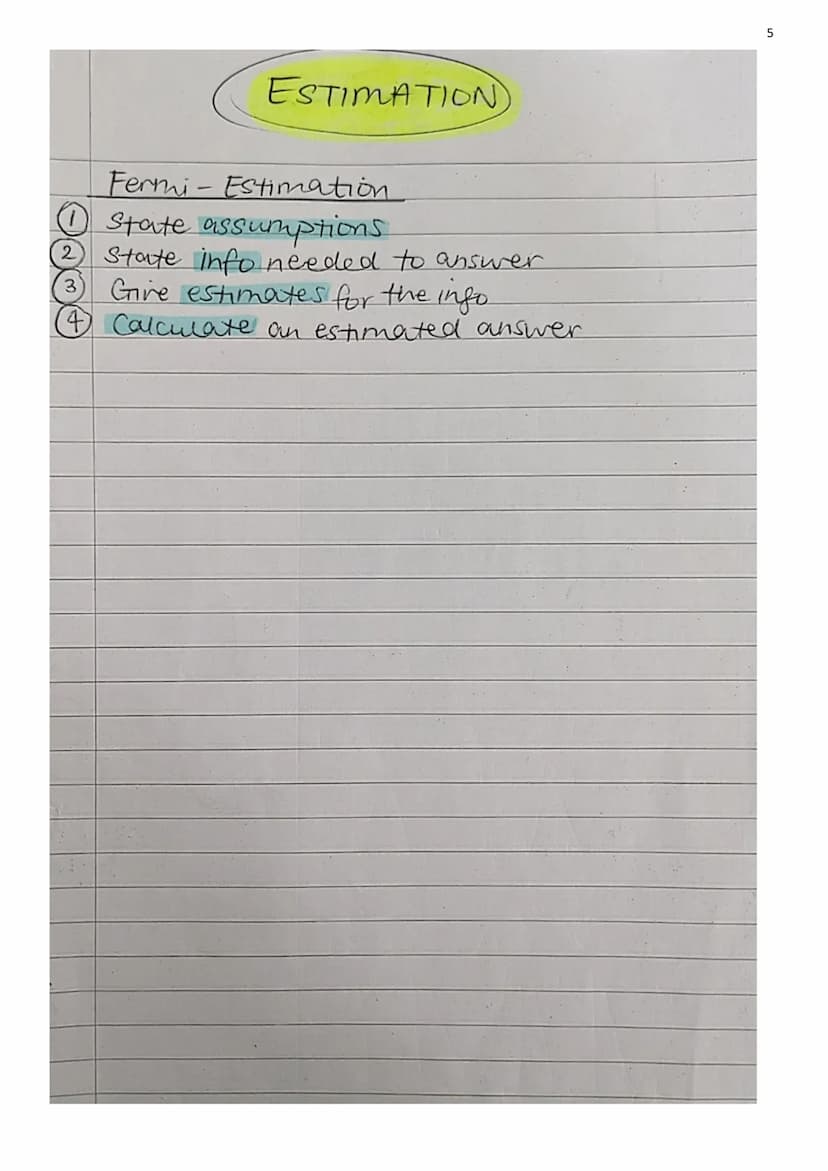 5
ESTIMATION
Fermi - Estimation
1 State assumptions
2 State info needed to answer
3 Give estimates for the info
4 Calculate an estimated answer